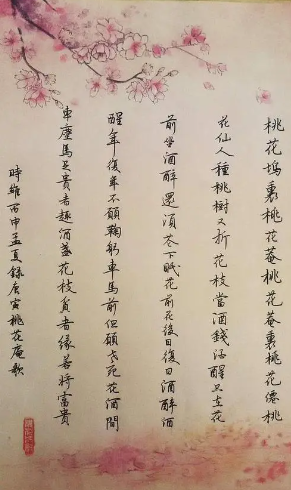 桃花塢裏桃花菴桃花菴裏桃花僊桃
花仙人種桃樹又折花枝當酒錢酒醒只在花
前坐酒醉還須花下眠花前花後日復日酒醉酒
醒年復年不願鞠躬車馬前但願老死花酒間
車塵馬足貴者趣酒盞花枝貧者緣若將富貴
時維丙申孟夏錄唐寅桃花庵歌